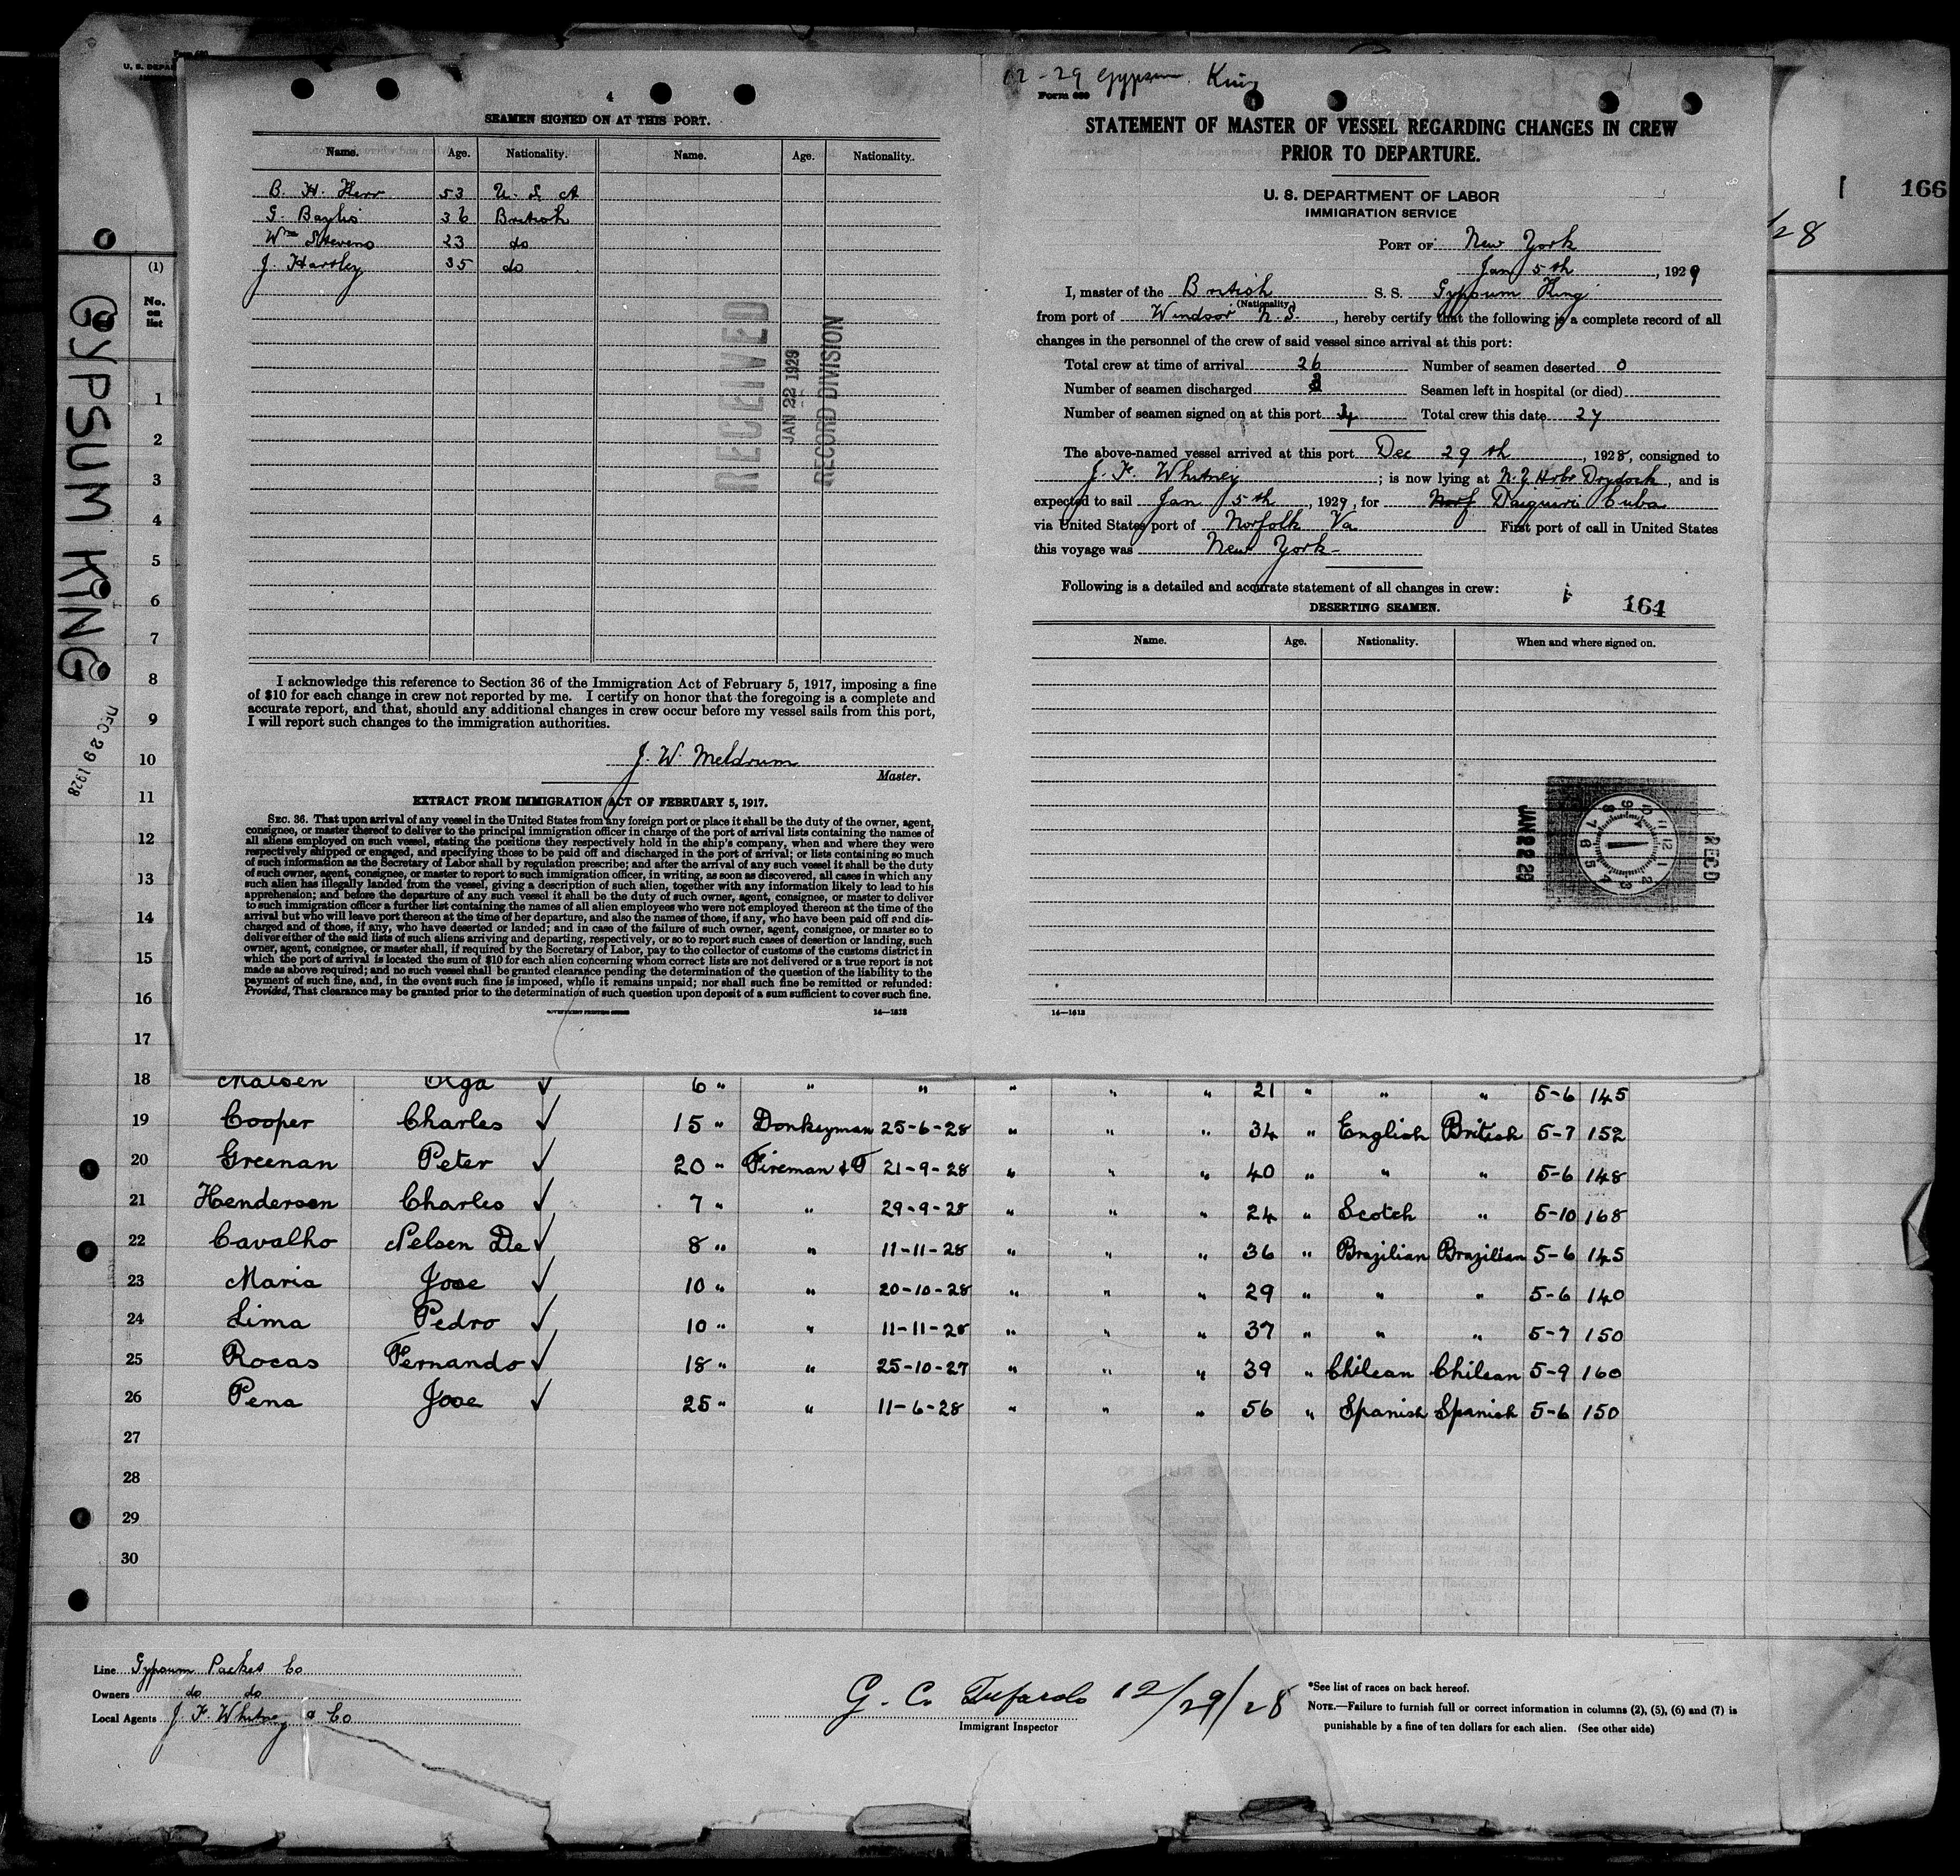 4
SEAMEN SIGNED ON AT THIS PORT.
Name. Age. Nationality. Name. Age. Nationality.
B. H. Herr 53 U. S. A
G. Baylis 36 British
Wm Stevens 23 do
J. Hartley 35 do
RECEIVED
JAN 22 1929
RECORD DIVISION
I acknowledge this reference to Section 36 of the Immigration Act of February 5, 1917, imposing a fine
of $10 for each change in crew not reported by me. I certify on honor that the foregoing is a complete and
accurate report, and that, should any additional changes in crew occur before my vessel sails from this port,
I will report such changes to the immigration authorities.
J. W. Meldrum
Master.
EXTRACT FROM IMMIGRATION ACT OF FEBRUARY 5, 1917.
SEC. 36. That upon arrival of any vessel in the United States from any foreign port or place it shall be the duty of the owner, agent,
consignee, or master thereof to deliver to the principal immigration officer in charge of the port of arrival lists containing the names of
all aliens employed on such vessel, stating the positions they respectively hold in the ship's company, when and where they were
respectively shipped or engaged, and specifying those to be paid off and discharged in the port of arrival; or lists containing so much
of such information as the Secretary of Labor shall by regulation prescribe; and after the arrival of any such vessel it shall be the duty
of such owner, agent, consignee, or master to report to such immigration officer, in writing, as soon as discovered, all cases in which any
such alien has illegally landed from the vessel, giving a description of such alien, together with any information likely to lead to his
apprehension; and before the departure of any such vessel it shall be the duty of such owner, agent, consignee, or master to deliver
to such immigration officer a further list containing the names of all alien employees who were not employed thereon at the time of the
arrival but who will leave port thereon at the time of her departure, and also the names of those, if any, who have been paid off and dis-
charged and of those, if any, who have deserted or landed; and in case of the failure of such owner, agent, consignee, or master so to
deliver either of the said lists of such aliens arriving and departing, respectively, or so to report such cases of desertion or landing, such
owner, agent, consignee, or master shall, if required by the Secretary of Labor, pay to the collector of customs of the customs district in
which the port of arrival is located the sum of $10 for each alien concerning whom correct lists are not delivered or a true report is not
made as above required; and no such vessel shall be granted clearance pending the determination of the question of the liability to the
payment of such fine, and, in the event such fine is imposed, while it remains unpaid; nor shall such fine be remitted or refunded:
Provided, That clearance may be granted prior to the determination of such question upon deposit of a sum sufficient to cover such fine.
GOVERNMENT PRINTING OFFICE 14—1613
12-29 Gypsum King
Form 680
STATEMENT OF MASTER OF VESSEL REGARDING CHANGES IN CREW
PRIOR TO DEPARTURE.
U. S. DEPARTMENT OF LABOR
IMMIGRATION SERVICE
PORT OF New York
Jan 5th, 1929
I, master of the British S. S. Gypsum King
(Nationality)
from port of Windsor N.S., hereby certify that the following is a complete record of all
changes in the personnel of the crew of said vessel since arrival at this port:
Total crew at time of arrival 26 Number of seamen deserted 0
Number of seamen discharged 3 Seamen left in hospital (or died)
Number of seamen signed on at this port 4 Total crew this date 27
The above-named vessel arrived at this port Dec 29th, 1928, consigned to
J. F. Whitney; is now lying at N.Y. Hobr Drydock, and is
expected to sail Jan 5th, 1929, for Norf Daiquiri Cuba
via United States port of Norfolk Va First port of call in United States
this voyage was New York
Following is a detailed and accurate statement of all changes in crew:
164
DESERTING SEAMEN.
Name. Age. Nationality. When and where signed on.
JAN 22 29
REC'D
14—1613
166
/28
U. S. DEPA
(1)
No. on list
GYPSUM KING
DEC 29 1928
1
2
3
4
5
6
7
8
9
10
11
12
13
14
15
16
17
18 Matsen Olga ✓ 6 " " " " " " 21 " " " 5-6 145
19 Cooper Charles ✓ 15 " Donkeyman 25-6-28 " " " 34 " English British 5-7 152
20 Greenan Peter ✓ 20 " Fireman & T 21-9-28 " " " 40 " " " 5-6 148
21 Henderson Charles ✓ 7 " " 29-9-28 " " " 24 " Scotch " 5-10 168
22 Cavalho Nelson De ✓ 8 " " 11-11-28 " " " 36 " Brazilian Brazilian 5-6 145
23 Maria Jose ✓ 10 " " 20-10-28 " " " 29 " " " 5-6 140
24 Lima Pedro ✓ 10 " " 11-11-28 " " " 37 " " " 5-7 150
25 Rocas Fernando ✓ 18 " " 25-10-27 " " " 39 " Chilean Chilean 5-9 160
26 Pena Jose ✓ 25 " " 11-6-28 " " " 56 " Spanish Spanish 5-6 150
27
28
29
30
Line Gypsum Packet Co
Owners do do
Local Agents J. F. Whitney & Co
G. C. Tufarolo 12/29/28
Immigrant Inspector
*See list of races on back hereof.
NOTE.—Failure to furnish full or correct information in columns (2), (5), (6) and (7) is
punishable by a fine of ten dollars for each alien. (See other side)